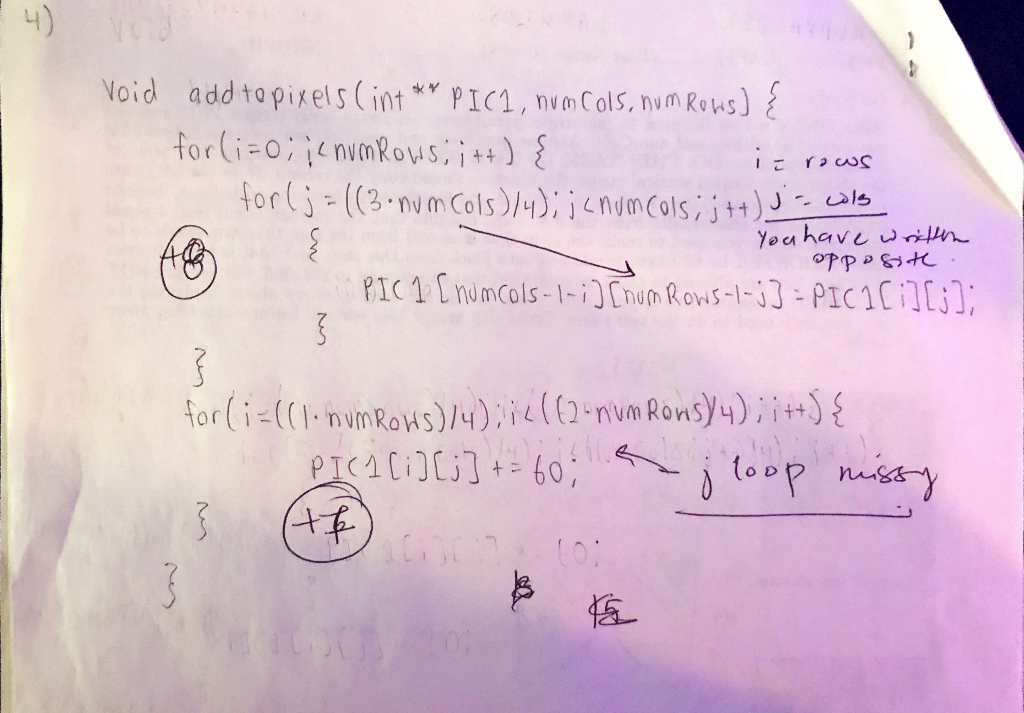 4)
void addtopixels(int ** PIC1, numCols, numRows) {
for(i=0; i<numRows; i++) {
i = rows
for(j = ((3·numCols)/4); j<numCols; j++) j = cols
{ You have written
opposite.
PIC1[numcols-1-i][numRows-1-j] = PIC1[i][j];
}
}
for(i=((1·numRows)/4); i<((2·numRows)/4); i++) {
PIC1[i][j] += 60; j loop missg
}
}